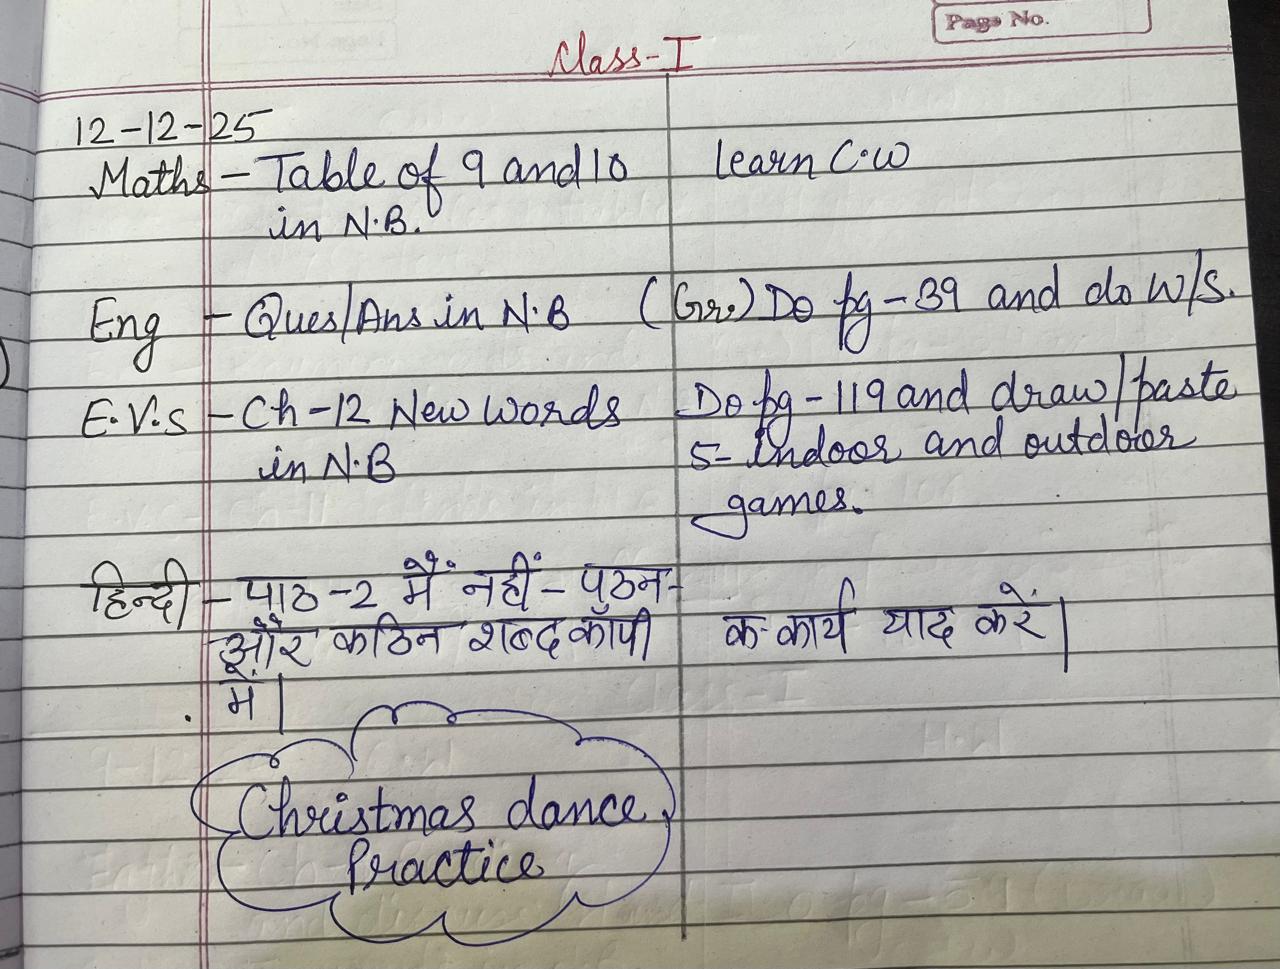 Page No.
Class-I
12-12-25
Maths - Table of 9 and 10 learn C.W
in N.B.
Eng - Ques/Ans in N.B (Gr.) Do pg-39 and do W/S.
E.V.S - Ch-12 New Words Do pg-119 and draw/paste
in N.B 5- Indoor and outdoor
games.
हिन्दी - पाठ-2 मैं नहीं - पठन-
और कठिन शब्द कॉपी क-कार्य याद करें।
में।
Christmas dance
Practice